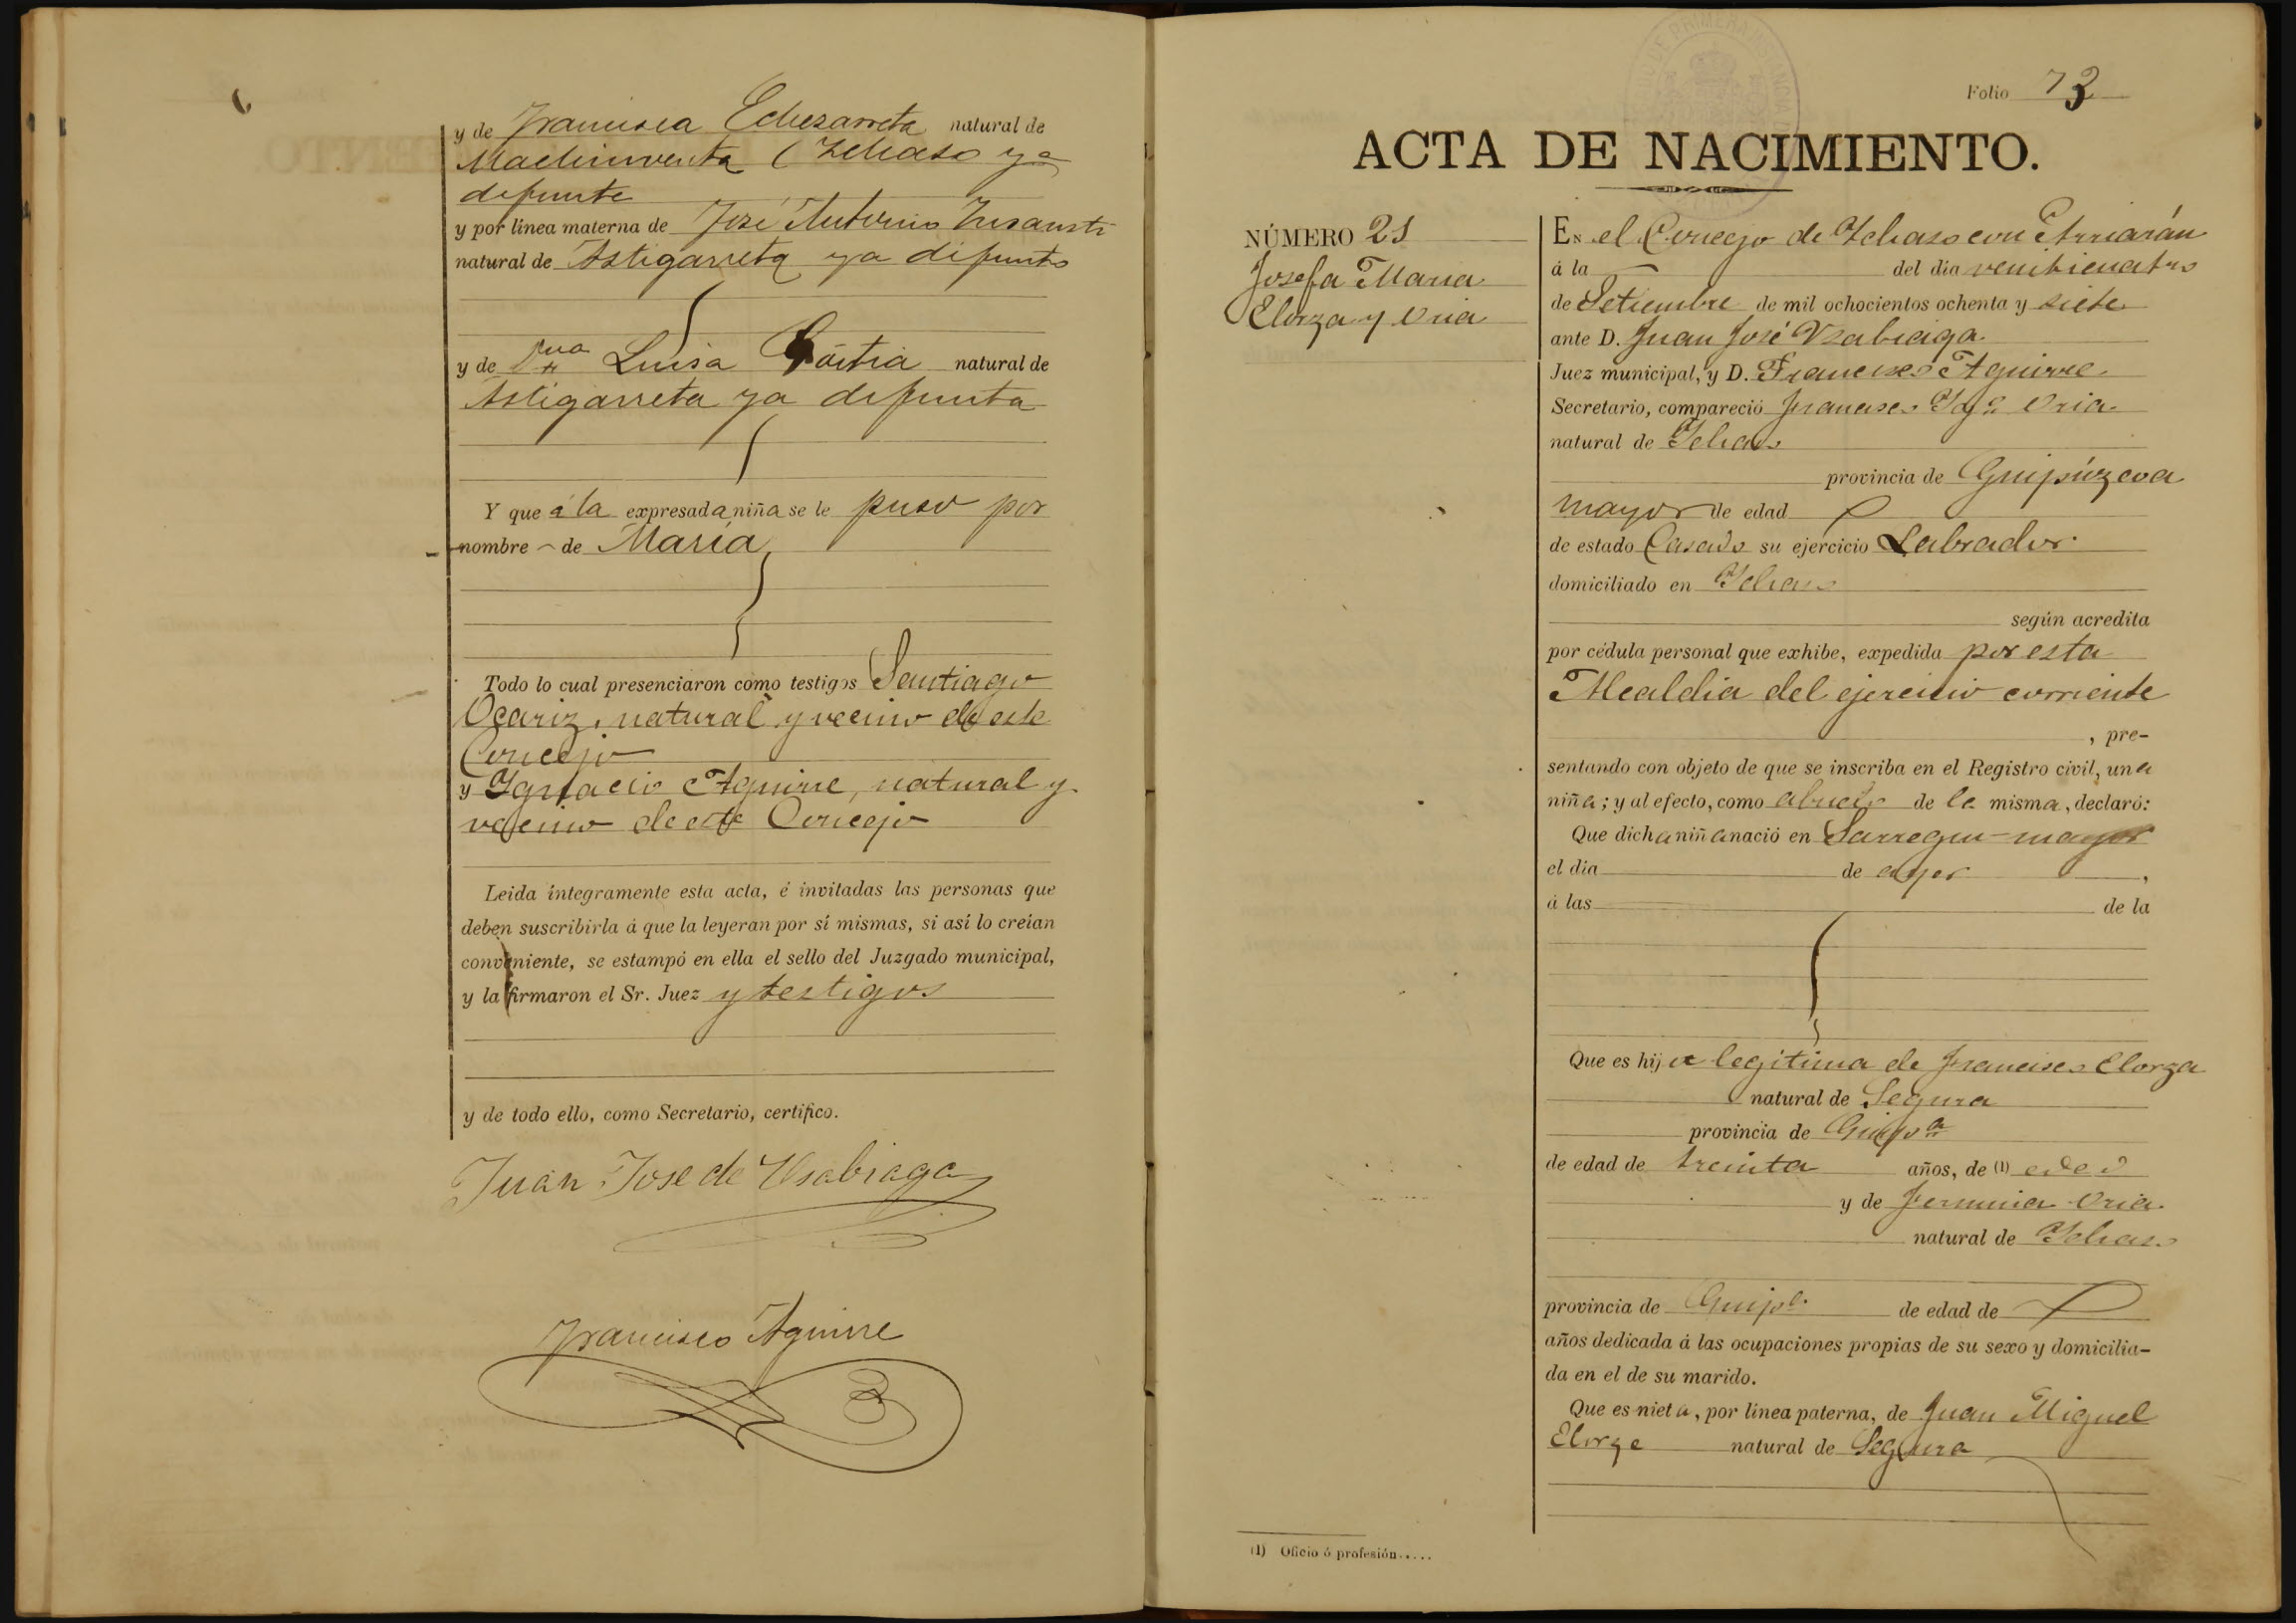 y de Francisca Echezarreta natural de
Machinventa (Ichaso ya
difunta
y por línea materna de José Antonio Insausti
natural de Astigarreta ya difunto
y de Luisa Goitia natural de
Astigarreta ya difunta
Y que á la expresada niña se le puso por
nombre de María
Todo lo cual presenciaron como testigos Santiago
Ocariz, natural y vecino de este
Concejo
y Ignacio Aguirre, natural y
vecino de este Concejo
Leida integramente esta acta, é invitadas las personas que
deben suscribirla á que la leyeran por sí mismas, si así lo creían
conveniente, se estampó en ella el sello del Juzgado municipal,
y la firmaron el Sr. Juez y testigos
y de todo ello, como Secretario, certifico.
Juan Jose de Usabiaga
Francisco Aguirre
Folio 73
ACTA DE NACIMIENTO.
NÚMERO 21
Josefa Maria
Elorza y Oria
En el Concejo de Ichaso con Arriarán
á la del día veinticuatro
de Setiembre de mil ochocientos ochenta y siete
ante D. Juan José Usabiaga
Juez municipal, y D. Francisco Aguirre
Secretario, compareció Francisco Ig.º Oria
natural de Ichaso
provincia de Guipúzcoa
mayor de edad
de estado Casado su ejercicio Labrador
domiciliado en Ichaso
según acredita
por cédula personal que exhibe, expedida por esta
Alcaldia del ejercicio corriente
, pre-
sentando con objeto de que se inscriba en el Registro civil, una
niña; y al efecto, como abuelo de la misma, declaró:
Que dicha niña nació en Sarregui-mayor
el día de ayer,
á las de la
Que es hija legitima de Francisco Elorza
natural de Segura
provincia de Guip.ª
de edad de treinta años, de (1)
y de Fermina Oria
natural de Ichaso
provincia de Guip.ª de edad de
años dedicada á las ocupaciones propias de su sexo y domicilia-
da en el de su marido.
Que es nieta, por línea paterna, de Juan Miguel
Elorza natural de Segura
(1) Oficio ó profesión.....